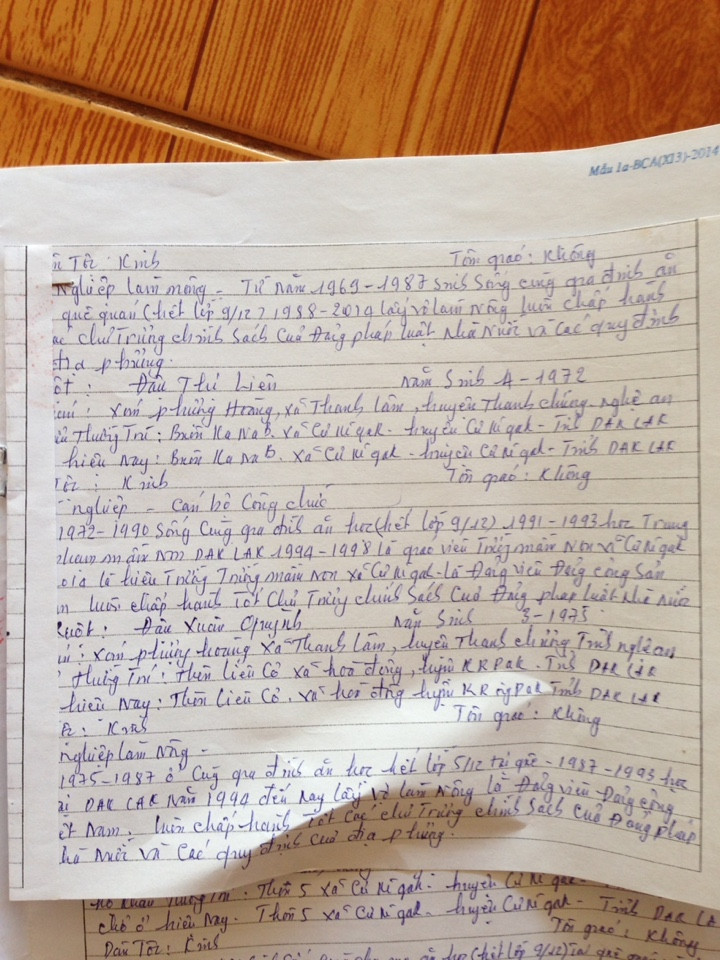 Mẫu 1a-BCA(X13)-2014
Tộc: Kinh Tôn giáo: Không
Nghiệp làm nông - Từ Năm 1969-1987 Sinh Sống cùng gia đình ăn
quê quán (hết lớp 9/12) 1988-2014 lấy vợ làm Nông luôn chấp hành
chủ Trương chính Sách Của Đảng pháp luật Nhà Nước và Các quy định
địa phương.
Đậu Thị Liên Năm Sinh 4-1972
xóm phượng Hoàng, xã Thanh lâm, huyện Thanh chương. Nghệ an
Thường Trú: Buôn Ka Na B. Xã Cư Nígak. huyện Cư Nígak - Tỉnh DAK LAK
hiện Nay: Buôn Ka Na B. Xã Cư Nígak - huyện Cư Nígak - Tỉnh DAK LAK
Tộc: Kinh Tôn giáo: Không
nghiệp - Cán bộ Công chức
1972-1990 Sống Cùng gia đình ăn học (hết lớp 9/12) 1991-1993 học Trung
phạm mầm Non DAK LAK 1994-1998 là giáo viên Trường mầm Non xã Cư Nígak
là hiệu Trưởng Trường mầm Non xã Cư Nígak - là Đảng viên Đảng cộng Sản
luôn chấp hành Tốt Chủ Trương chính Sách Của Đảng pháp luật Nhà Nước
ruột: Đậu Xuân Quỳnh Năm Sinh 3-1975
xóm phượng hoàng xã Thanh lâm, huyện Thanh chương Tỉnh nghệ an
Thường Trú: Thôn liên Cơ xã hoà đông, huyện KRPak. Tỉnh DAK LAK
hiện Nay: Thôn liên Cơ, xã hoà đông huyện Tỉnh DAK LAK
Kinh Tôn giáo: Không
Nghiệp làm Nông -
1975-1987 ở Cùng gia đình ăn học hết lớp 5/12 tại quê - 1987-1993 học
DAK LAK Năm 1994 đến Nay lấy vợ làm Nông là Đảng viên Đảng cộng
Nam. luôn chấp hành Tốt Các chủ Trương chính Sách Của Đảng pháp
Nhà Nước và Các quy định Của địa phương.
hộ khẩu Thường Trú: Thôn 5 xã Cư Nígak - huyện Cư Nígak -
chỗ ở hiện Nay. Thôn 5 xã Cư Nígak - huyện Cư Nígak - Tỉnh DAK LA
Dân Tộc: Kinh Tôn giáo: Không
(hết lớp 9/12) Tại quê